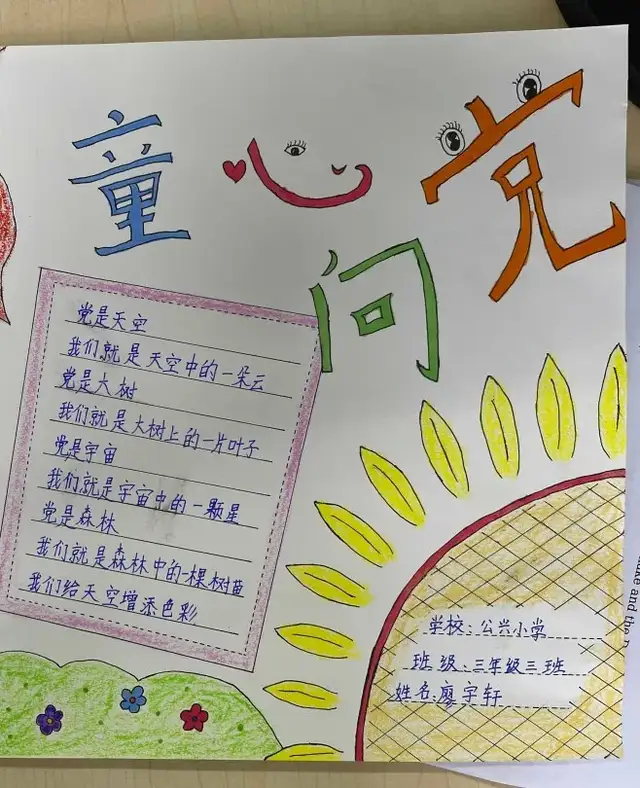 童心向党
党是天空
我们就是天空中的一朵云
党是大树
我们就是大树上的一片叶子
党是宇宙
我们就是宇宙中的一颗星
党是森林
我们就是森林中的一棵树苗
我们给天空增添色彩
学校:公兴小学
班级:三年级三班
姓名:廖宇轩